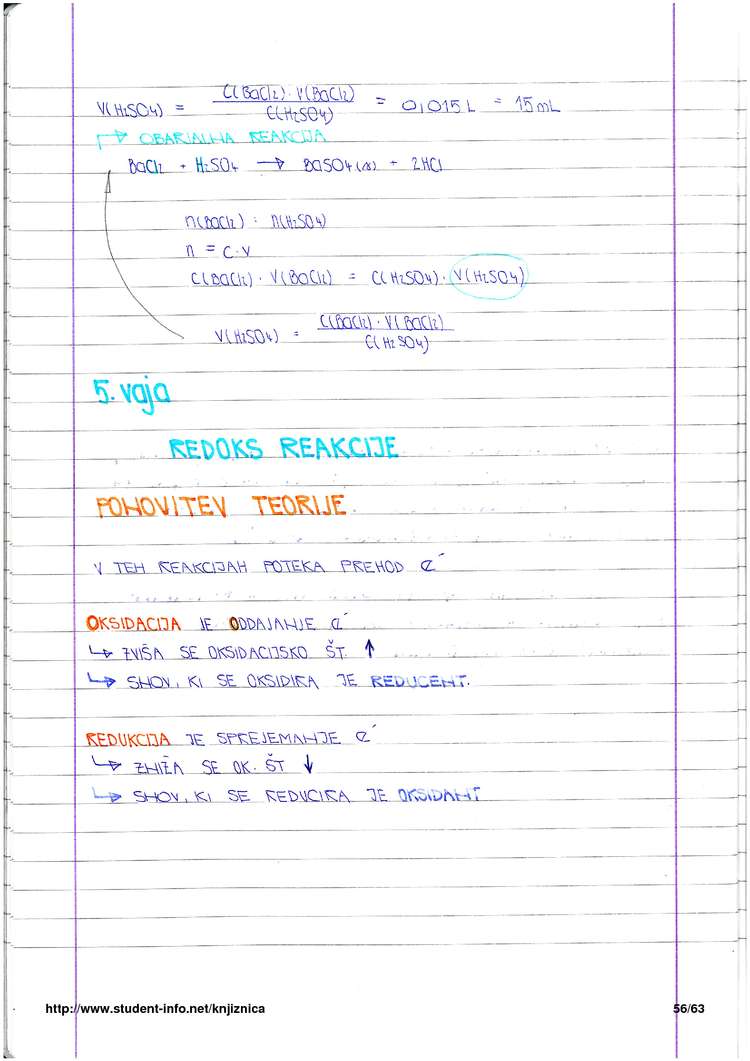 V(H2SO4) = C(BaCl2) · V(BaCl2) / C(H2SO4) = 0,015 L = 15 mL
↳ OBARJALNA REAKCIJA
BaCl2 + H2SO4 → BaSO4(s) + 2HCl
n(BaCl2) : n(H2SO4)
n = C·V
C(BaCl2) · V(BaCl2) = C(H2SO4) · V(H2SO4)
V(H2SO4) = C(BaCl2) · V(BaCl2) / C(H2SO4)
5. vaja
REDOKS REAKCIJE
PONOVITEV TEORIJE
V TEH REAKCIJAH POTEKA PREHOD e⁻
OKSIDACIJA JE ODDAJANJE e⁻
↳ ZVIŠA SE OKSIDACIJSKO ŠT. ↑
↳ SNOV, KI SE OKSIDIRA JE REDUCENT.
REDUKCIJA JE SPREJEMANJE e⁻
↳ ZNIŽA SE OK. ŠT ↓
↳ SNOV, KI SE REDUCIRA JE OKSIDANT
http://www.student-info.net/knjiznica 56/63